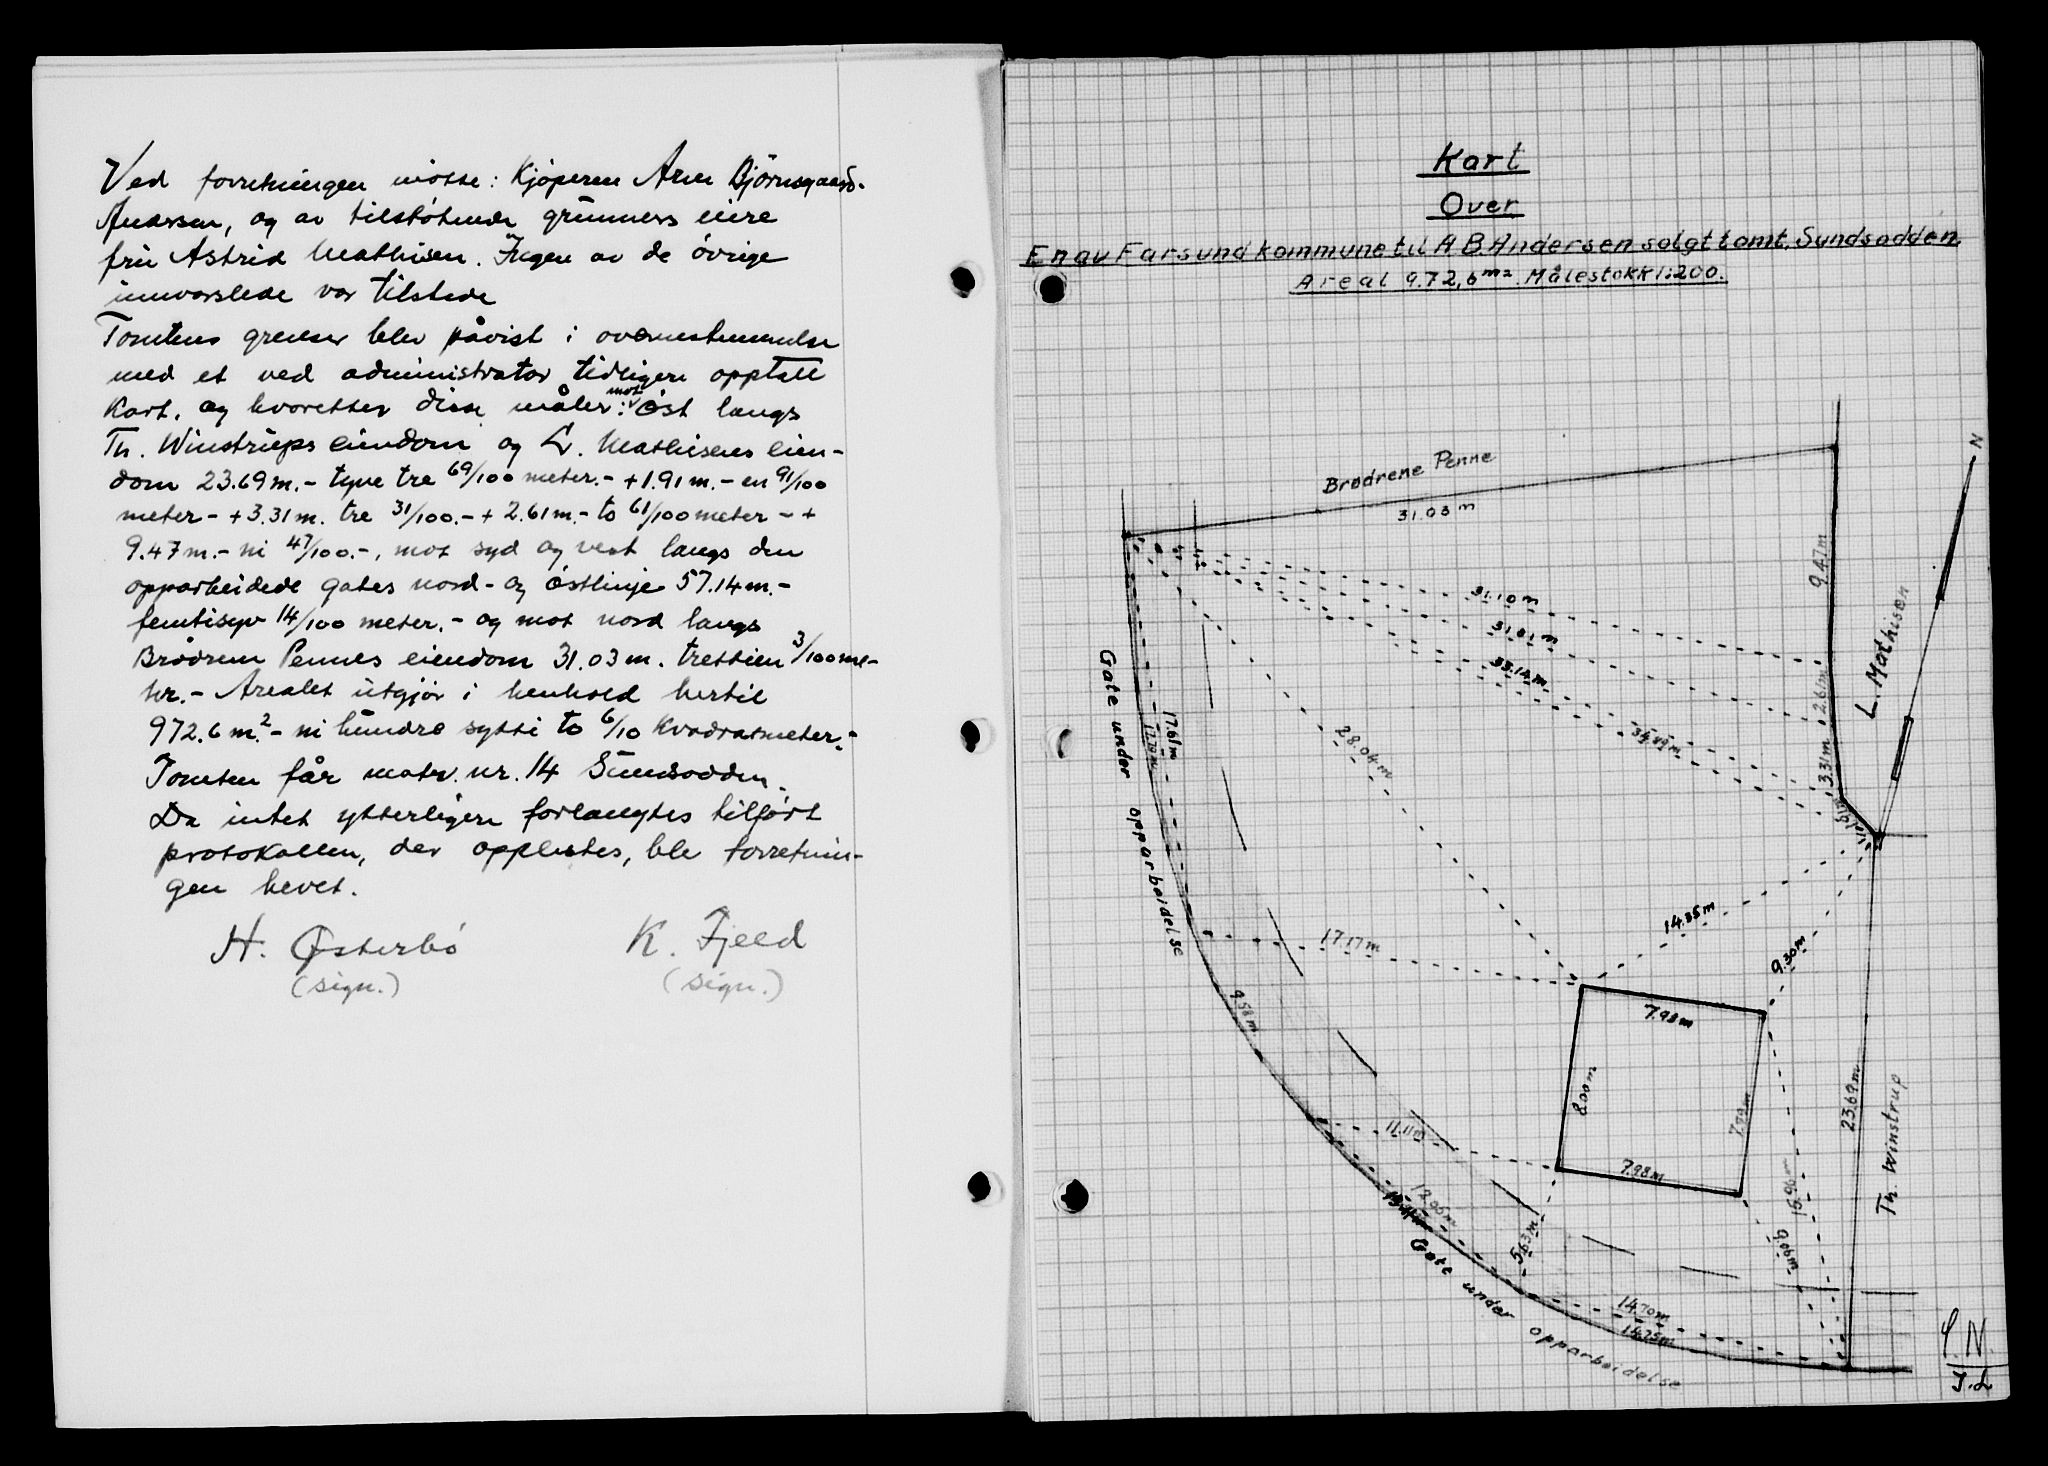 Ved forretningen møtte: Kjøperen Arne Björnsgaard-
Andersen, og av tilstøtende grunners eiere
fru Astrid Mathisen. Ingen av de övrige
innvarslede var tilstede
Tomtens grenser blev påvist i overenstemmelse
med et ved administrator tidligere opptatt
kart. og hvoretter disse måler: mot öst langs
Th. Winstrups eiendom og L. Mathisens eien-
dom 23.69 m. - tyve tre 69/100 meter. - + 1.91 m. - en 91/100
meter - + 3.31 m. tre 31/100. - + 2.61 m. - to 61/100 meter - +
9.47 m. - ni 47/100. -, mot syd og vest langs den
opparbeidede gates nord- og östlinje 57.14 m. -
femtisyv 14/100 meter. - og mot nord langs
Brødrene Pennes eiendom 31.03 m. trettien 3/100 me-
ter. - Arealet utgjør i henhold hertil
972.6 m.² - ni hundre sytti to 6/10 kvadratmeter. -
Tomten får matr. nr. 14 Sundsodden.
Da intet ytterligere forlangtes tilført
protokollen, der opplestes, ble forretnin-
gen hevet.
H. Østerbö K. Fjeld
(sign.) (sign.)
Kart
Over
En av Farsund kommune til A.B. Andersen solgt tomt. Sundsodden.
Areal 972,6 m². Målestokk 1:200.
N
Brødrene Penne
31.03 m
9.47 m
31.10 m
31.81 m
33.14 m
34.49 m
L. Mathisen
2.61 m
3.31 m
1.91 m
28.04 m
Gate under opparbeidelse
17.61 m
17.70 m
14.35 m
17.17 m
9.30 m
9.58 m
7.98 m
8.00 m
7.99 m
7.98 m
11.11 m
23.69 m
Th. Winstrup
15.96 m
12.95 m
5.63 m
Gate under opparbeidelse
14.70 m
14.75 m
J.L